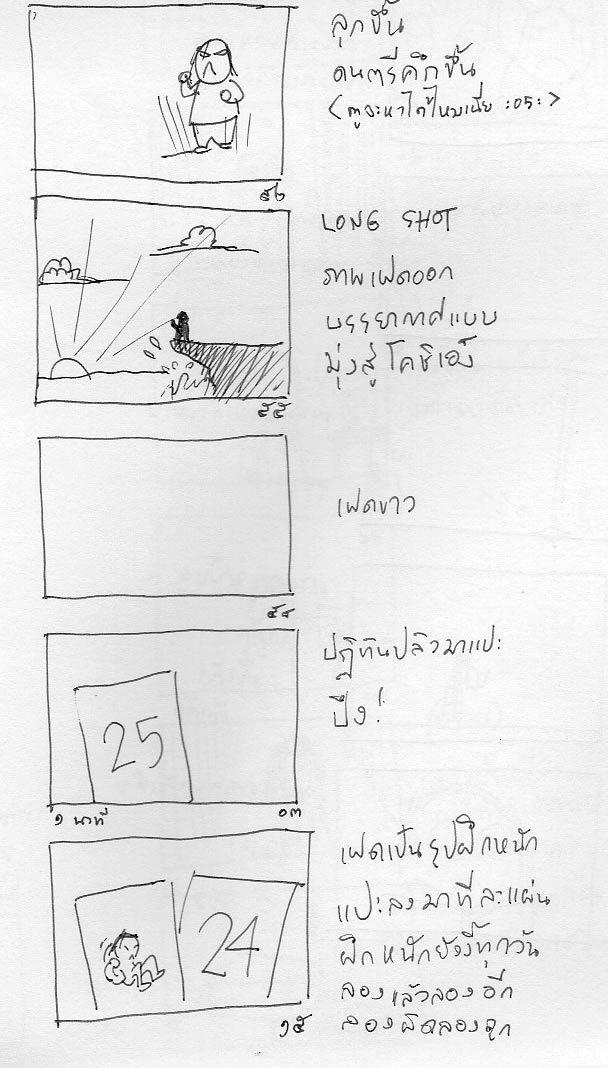 ลุกขึ้น
ดนตรีคึกขึ้น
(กูจะหาได้ไหมเนี่ย :05:)
๕๒
LONG SHOT
ภาพเฟดออก
บรรยากาศแบบ
มุ่งสู่โคชิเอ็ง
๕๕
เฟดขาว
๕๘
ปฏิทินปลิวมาแปะ
ปึง!
25
๑ นาที
๐๓
เฟดเป็นรูปฝึกหนัก
แปะลงมาทีละแผ่น
ฝึกหนักยังงี้ทุกวัน
ลองแล้วลองอีก
ลองผิดลองถูก
24
๑๕